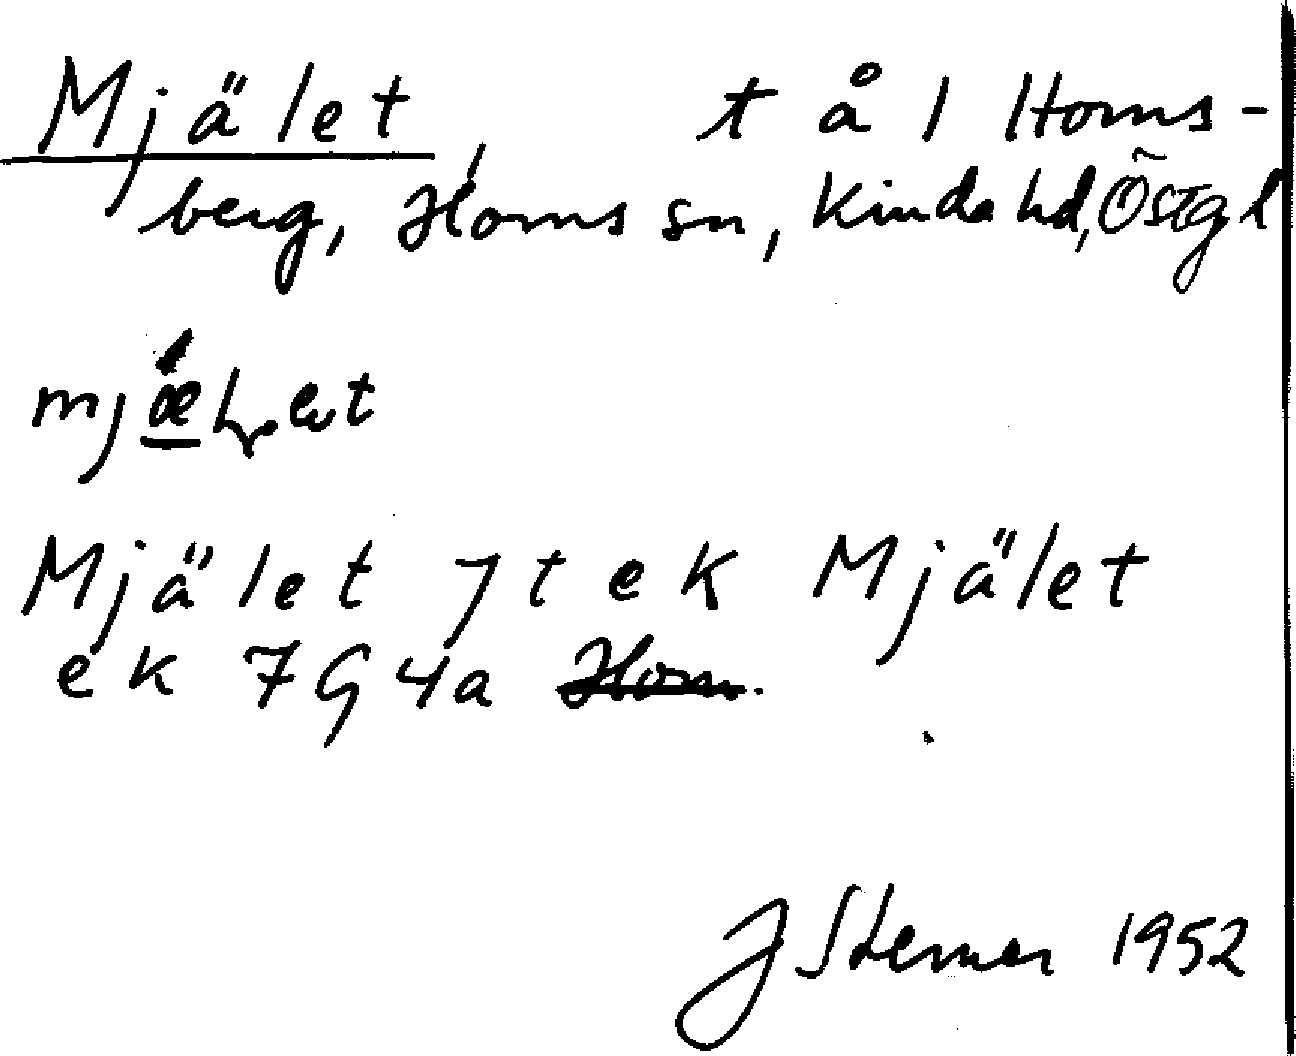 Mjälet, t å l Horns-
berg, Horns sn, Kinda hd, Östgl
Mjälet 7 t e k Mjälet
e k 7G4a Horn.
J Sterner 1952